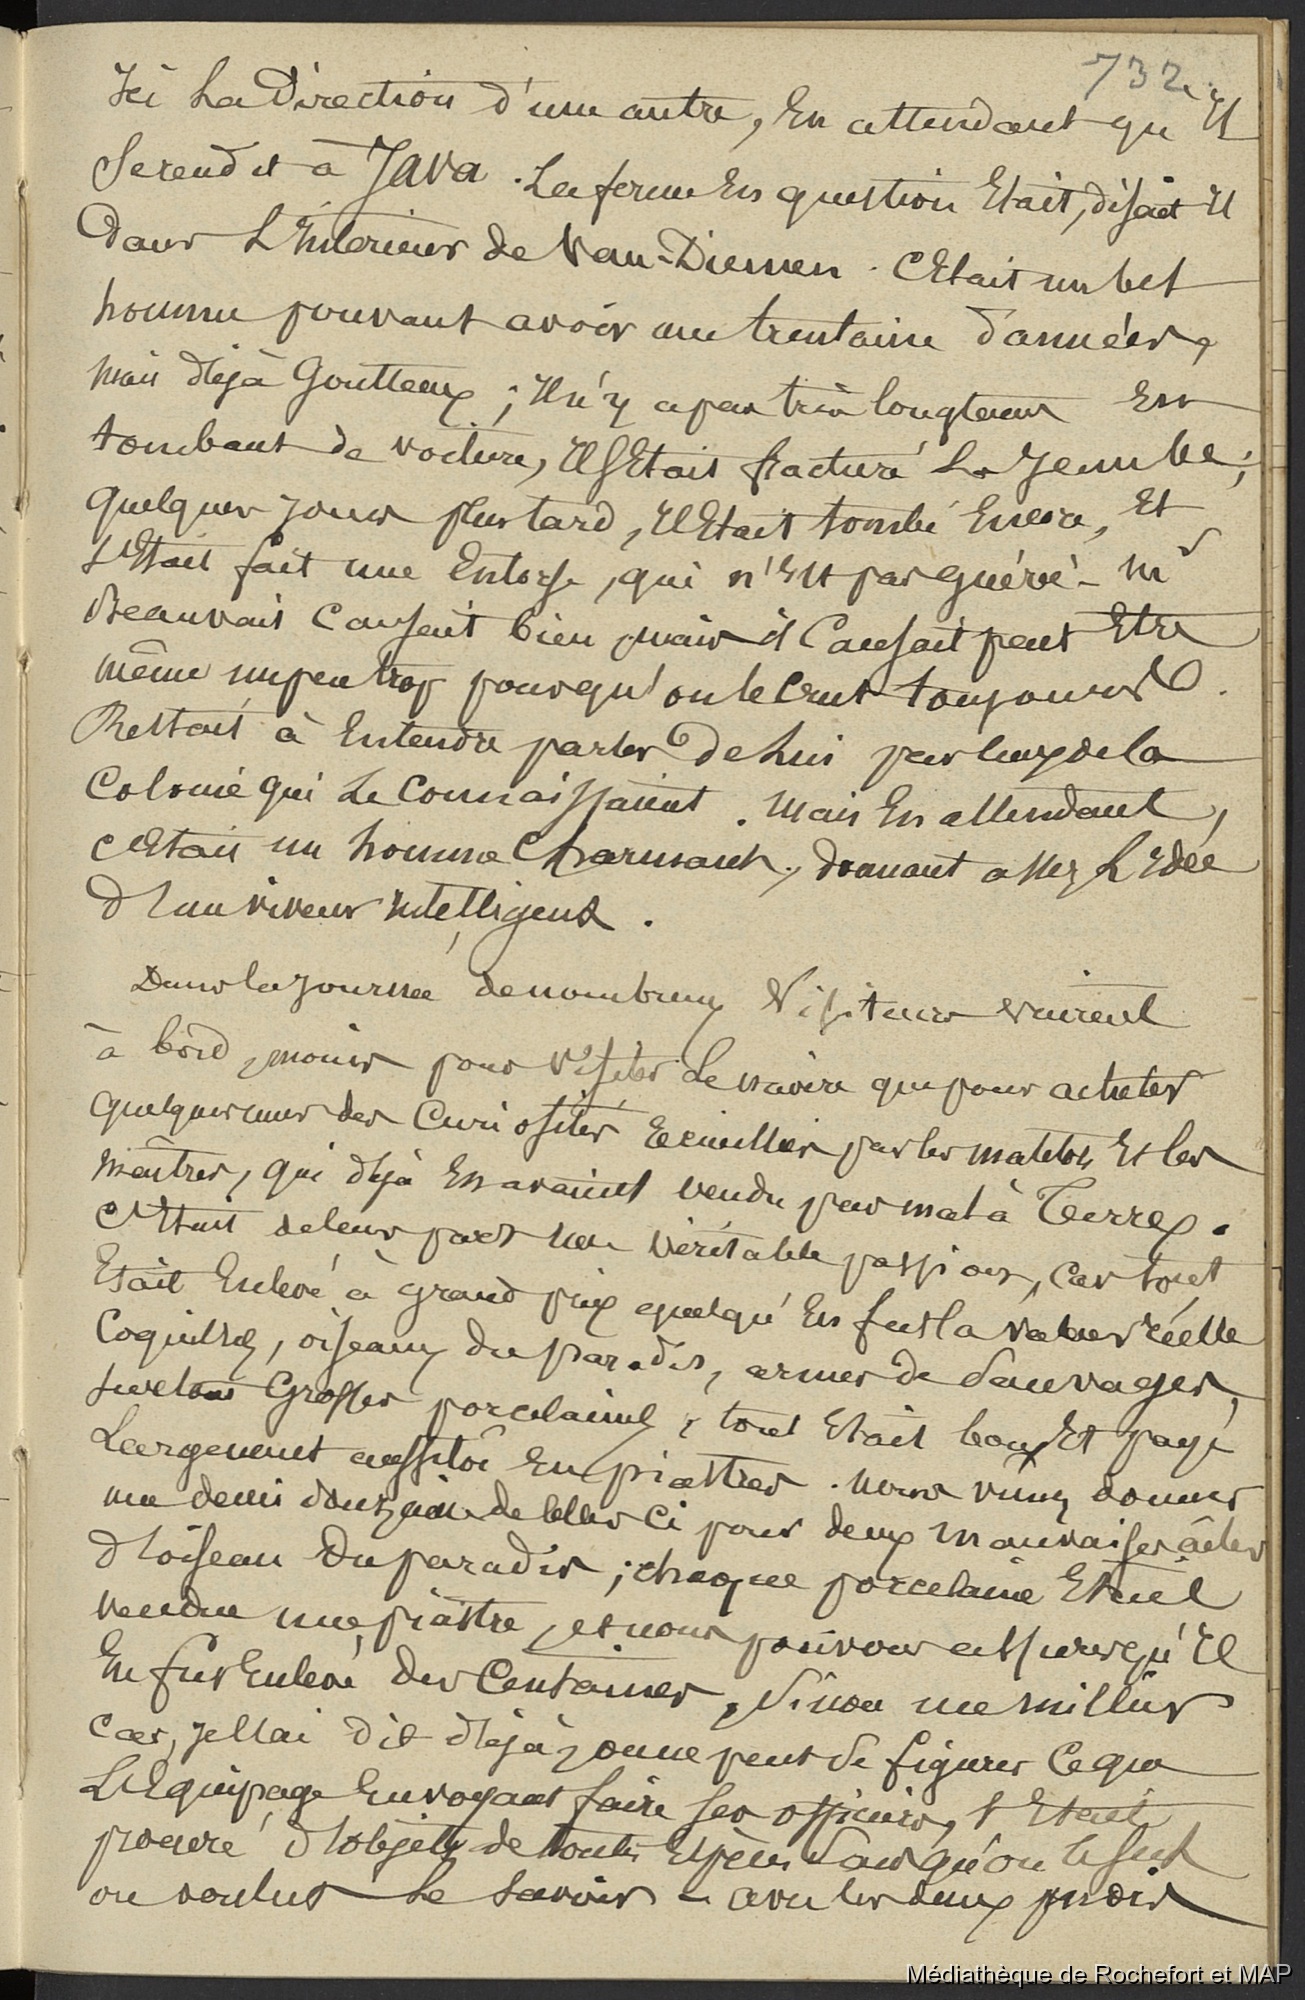 732
Ici La Direction d'une autre, En attendant qu'Il
Se rendit à Java. La ferme En question Etait, disait Il
Dans L'Interieur de Van-Diemen. C'Etait un bel
homme pouvant avoir une trentaine d'années,
mais déjà Goutteux ; Il n'y a pas très longtems En
tombant de voiture, Il s'Etait fracturé La Jambe ;
quelques jours plus tard, Il Etait tombé Encore, Et
s'Etait fait une Entorse, qui n'Est pas guérie - Mr
Beauvais Causait bien mais il Causait peut Etre
même un peu trop pour qu'on le Crut toujours.
Restait à Entendre parler de Lui par Ceux de la
Colonie qui Le Connaissaient. Mais En attendant,
c'Etait un homme Charmant, donnant assez L'Idée
d'un viveur intelligent.
Dans la journée de nombreux Visiteurs vinrent
à bord, moins pour visiter Le navire que pour acheter
quelques unes des Curiosités recueillies par les matelots Et les
maîtres, qui déjà En avaient vendu pas mal à Terre.
C'Etait de leur part une véritable passion, Car tout
Etait Enlevé à grand prix quelqu'En fut la valeur réelle
Coquilles, oiseaux du paradis, armes de Sauvages,
surtout Grosses porcelaines, tout Etait bon Et payé
Largement aussitôt En piastres. Nous vîmes donner
une demi douzaine de celles ci pour deux mauvaises ailes
d'oiseau du paradis ; chaque porcelaine Etait
vendue une piastre, et nous pouvons assurer qu'Il
En fut Enlevé des Centaines, Sinon un millier
Car, je l'ai dit déjà, on ne peut se figurer Ce que
L'Equipage En voyant faire ses officiers, s'Etait
procuré d'objets de toutes Espèces Sans qu'on le sut
ou voulut Le Savoir - avec les deux
Médiathèque de Rochefort et MAP